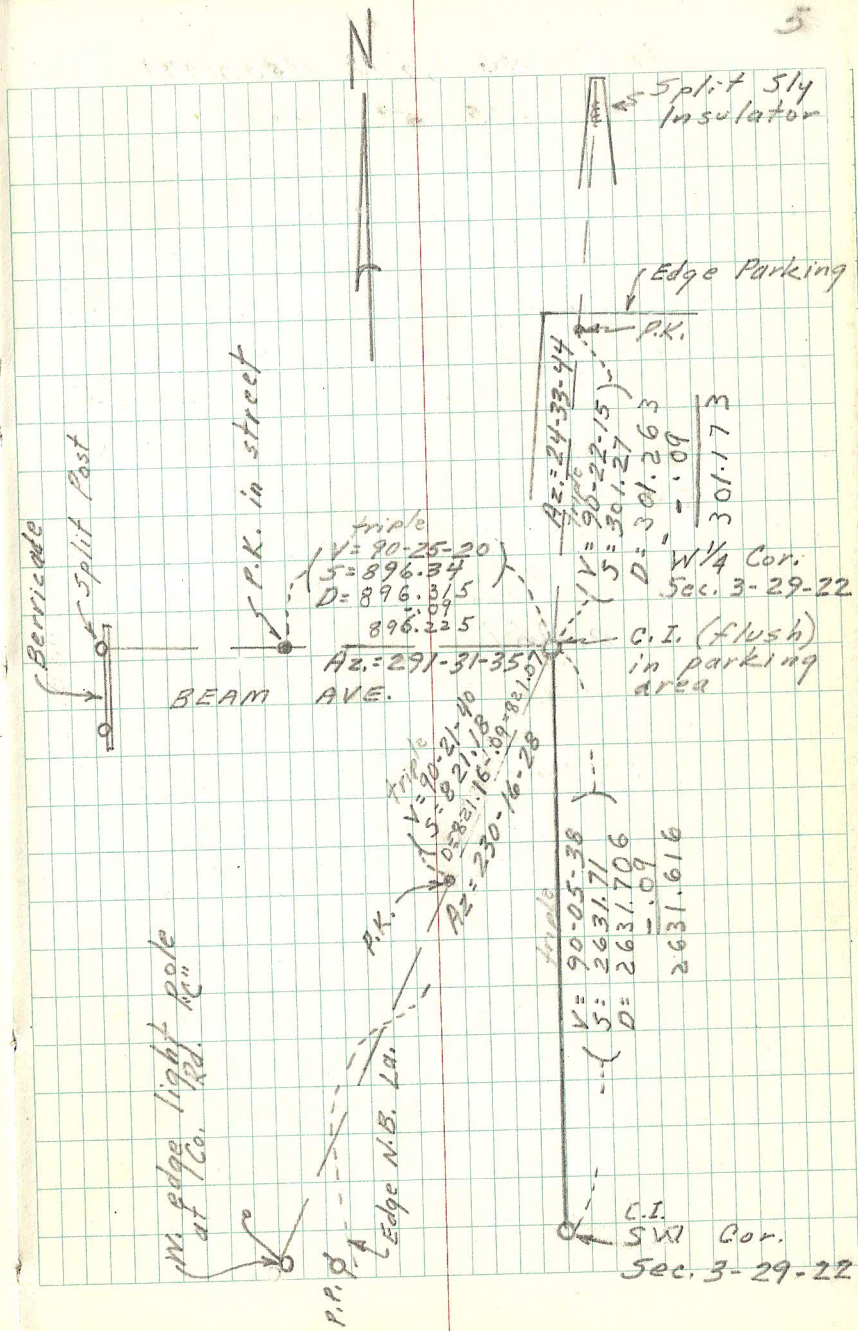 5
N
Split Sly
Insulator
Edge Parking
P.K.
Az.=24-33-44
triple
V= 90-22-15
S= 301.27
D= 301.263
-.09
301.173
W 1/4 Cor.
Sec. 3-29-22
C.I. (flush)
in parking
area
Berricade
Split Post
P.K. in street
triple
V= 90-25-20
S= 896.34
D= 896.315
-.09
896.225
Az.= 291-31-35
BEAM AVE.
triple
V= 90-21-40
S= 821.18
D=821.16-.09=821.07
Az= 230-16-28
P.K.
W. edge light pole
at Co. Rd. "C"
P.P.
Edge N.B. La.
triple
V= 90-05-38
S= 2631.71
D= 2631.706
-.09
2631.616
C.I.
SW Cor.
Sec. 3-29-22